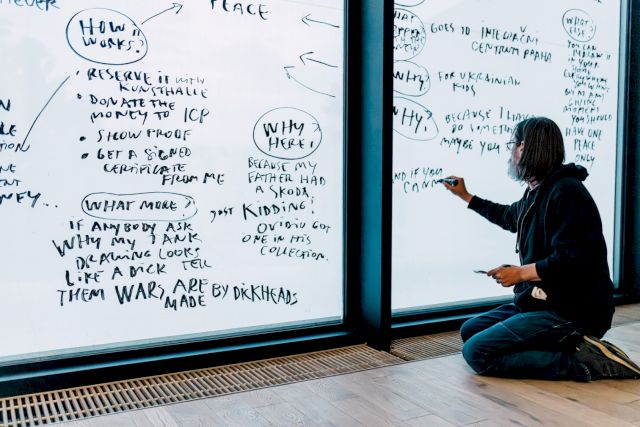 PLACE
HOW IT
WORKS?
• RESERVE IT WITH
KUNSTHALLE
• DONATE THE
MONEY TO ICP
• SHOW PROOF
• GET A SIGNED
CERTIFICATE
FROM ME
WHAT MORE?
IF ANYBODY ASK
WHY MY TANK
DRAWING LOOKS
LIKE A DICK TELL
THEM WARS ARE BY DICKHEADS
MADE
WHY
HERE?
BECAUSE MY
FATHER HAD
A SKODA
JUST KIDDING!
OVIDIU GOT
ONE IN HIS
COLLECTION.
GOES TO INTEGRAČNÍ
CENTRUM PRAHA
WHY
FOR UKRAINIAN
KIDS
WHY?
BECAUSE I HAVE
DO SOMETHING
MAYBE YOU
AND IF YOU
CAN
WHAT
ELSE?
YOU CAN
IN YOUR
HOME
BUT
GIVING
YOU SHOULD
HAVE ONE
PLACE
ONLY
MONEY...